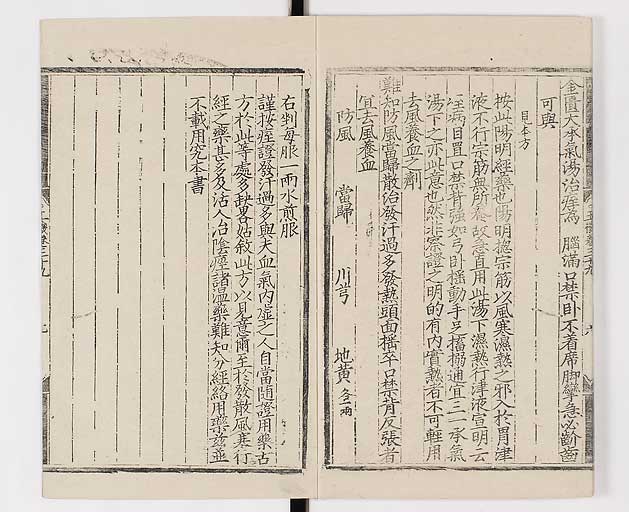 金匱大承氣湯治痓爲 胸滿口禁卧不着席脚攣急必齘齒
可與
見本方
按此陽明經藥也陽明揔宗筋以風寒濕熱之邪入於胃津
液不行宗筋無所養故急直用此湯下濕熱行津液宣明云
痓病目胃口禁背強如弓卧搖動手足搐搦通宜三一承氣
湯下之亦此意也然非察證之明的有内實熱者不可輕用
去風養血之劑
難知防風當歸散治發汗過多發熱頭面搖卒口禁背反張者
宜去風養血
防風 當歸 川芎 地黄各一兩
右判每服一兩水煎服
謹按痓證發汗過多與夫血氣内虛之人自當随證用藥古
方於此等處多缺畧姑敘此方以見意爾至於發散風寒行
經之藥甚多及活人治陰痓諸溫藥難知分經絡用藥玆並
不載用究本書